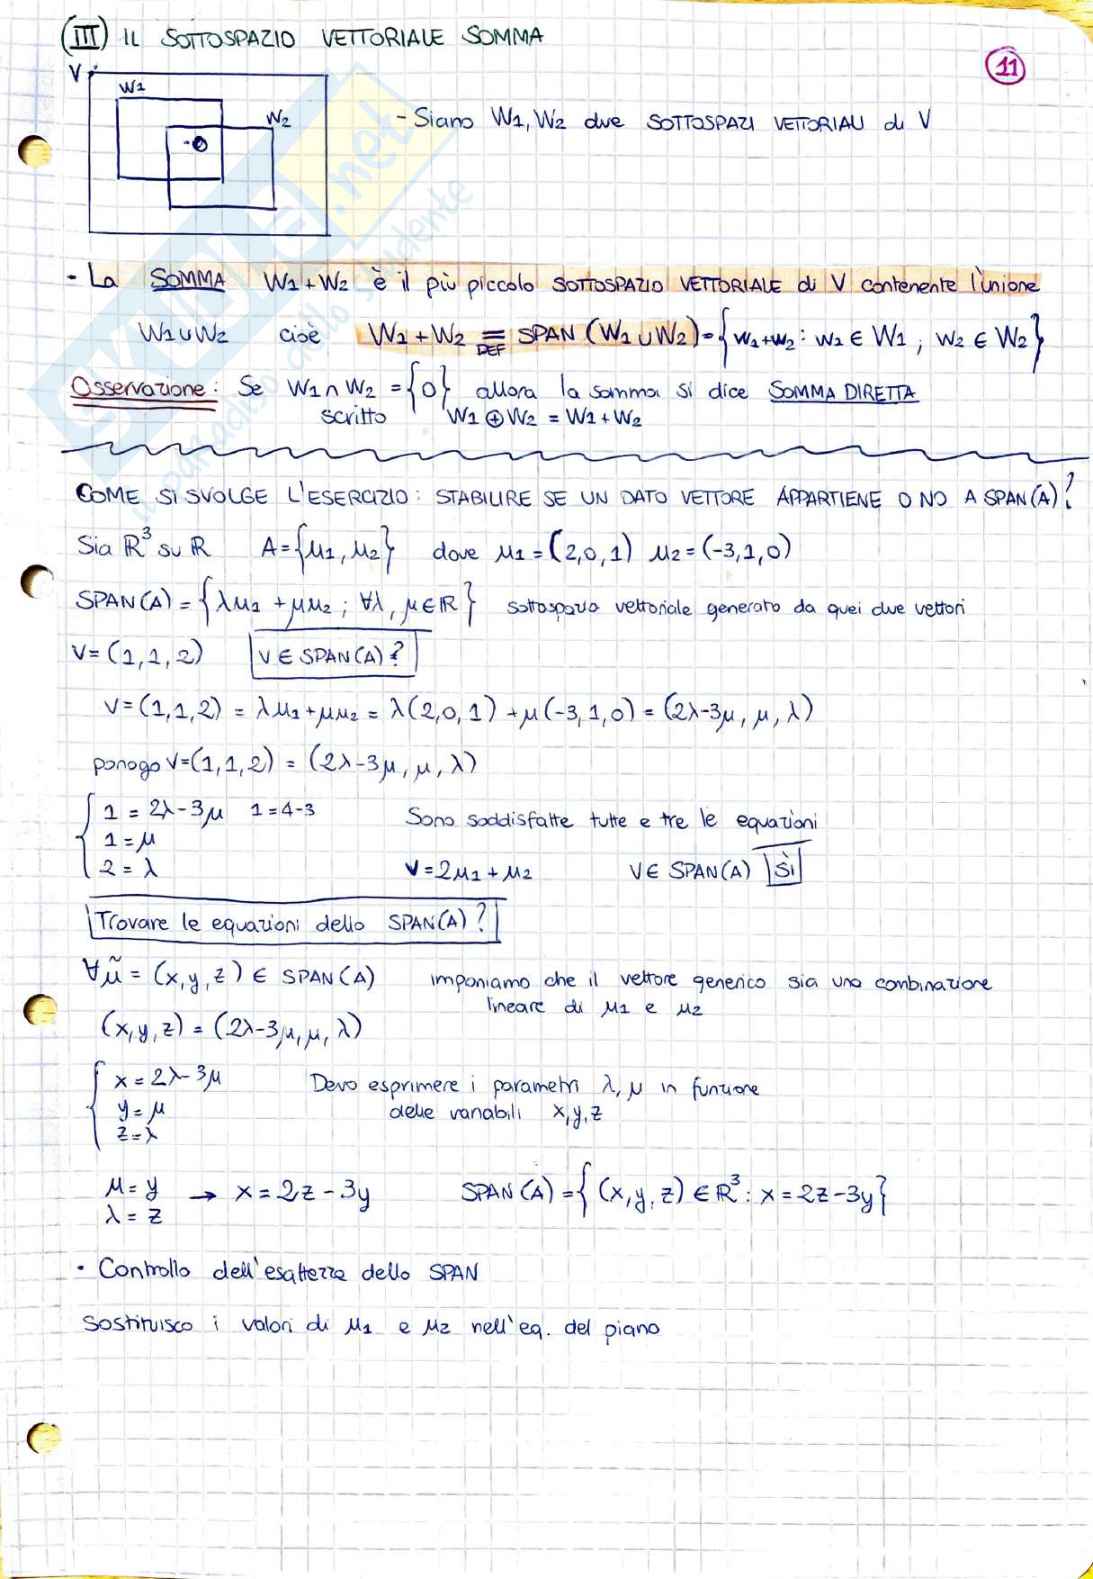 (III) IL SOTTOSPAZIO VETTORIALE SOMMA
11
V
W1
W2
·O
- Siano W1, W2 due SOTTOSPAZI VETTORIALI di V
- La SOMMA W1+W2 è il più piccolo SOTTOSPAZIO VETTORIALE di V contenente l'unione
W1∪W2 cioè W1+W2 = DEF SPAN (W1∪W2)={w1+w2 : w1 ∈ W1 ; w2 ∈ W2}
Osservazione: Se W1∩W2 = {0} allora la somma si dice SOMMA DIRETTA
scritto W1⊕W2 = W1+W2
COME SI SVOLGE L'ESERCIZIO: STABILIRE SE UN DATO VETTORE APPARTIENE O NO A SPAN(A)?
Sia ℝ³ su ℝ A={μ1, μ2} dove μ1=(2,0,1) μ2=(-3,1,0)
SPAN(A)={λμ1+μμ2; ∀λ, μ∈ℝ} sottospazio vettoriale generato da quei due vettori
V=(1,1,2) V∈SPAN(A)?
V=(1,1,2) = λμ1+μμ2 = λ(2,0,1)+μ(-3,1,0)=(2λ-3μ, μ, λ)
pongo V=(1,1,2) = (2λ-3μ, μ, λ)
{1=2λ-3μ 1=4-3 Sono soddisfatte tutte e tre le equazioni
1=μ
2=λ V=2μ1+μ2 V∈ SPAN(A) SÌ
Trovare le equazioni dello SPAN(A)?
∀μ̃=(x,y,z) ∈ SPAN(A) imponiamo che il vettore generico sia una combinazione
lineare di μ1 e μ2
(x,y,z) = (2λ-3μ, μ, λ)
{x=2λ-3μ Devo esprimere i parametri λ, μ in funzione
y=μ delle variabili x,y,z
z=λ
μ=y → x=2z-3y SPAN(A)={(x,y,z)∈ℝ³: x=2z-3y}
λ=z
· Controllo dell'esattezza dello SPAN
Sostituisco i valori di μ1 e μ2 nell'eq. del piano